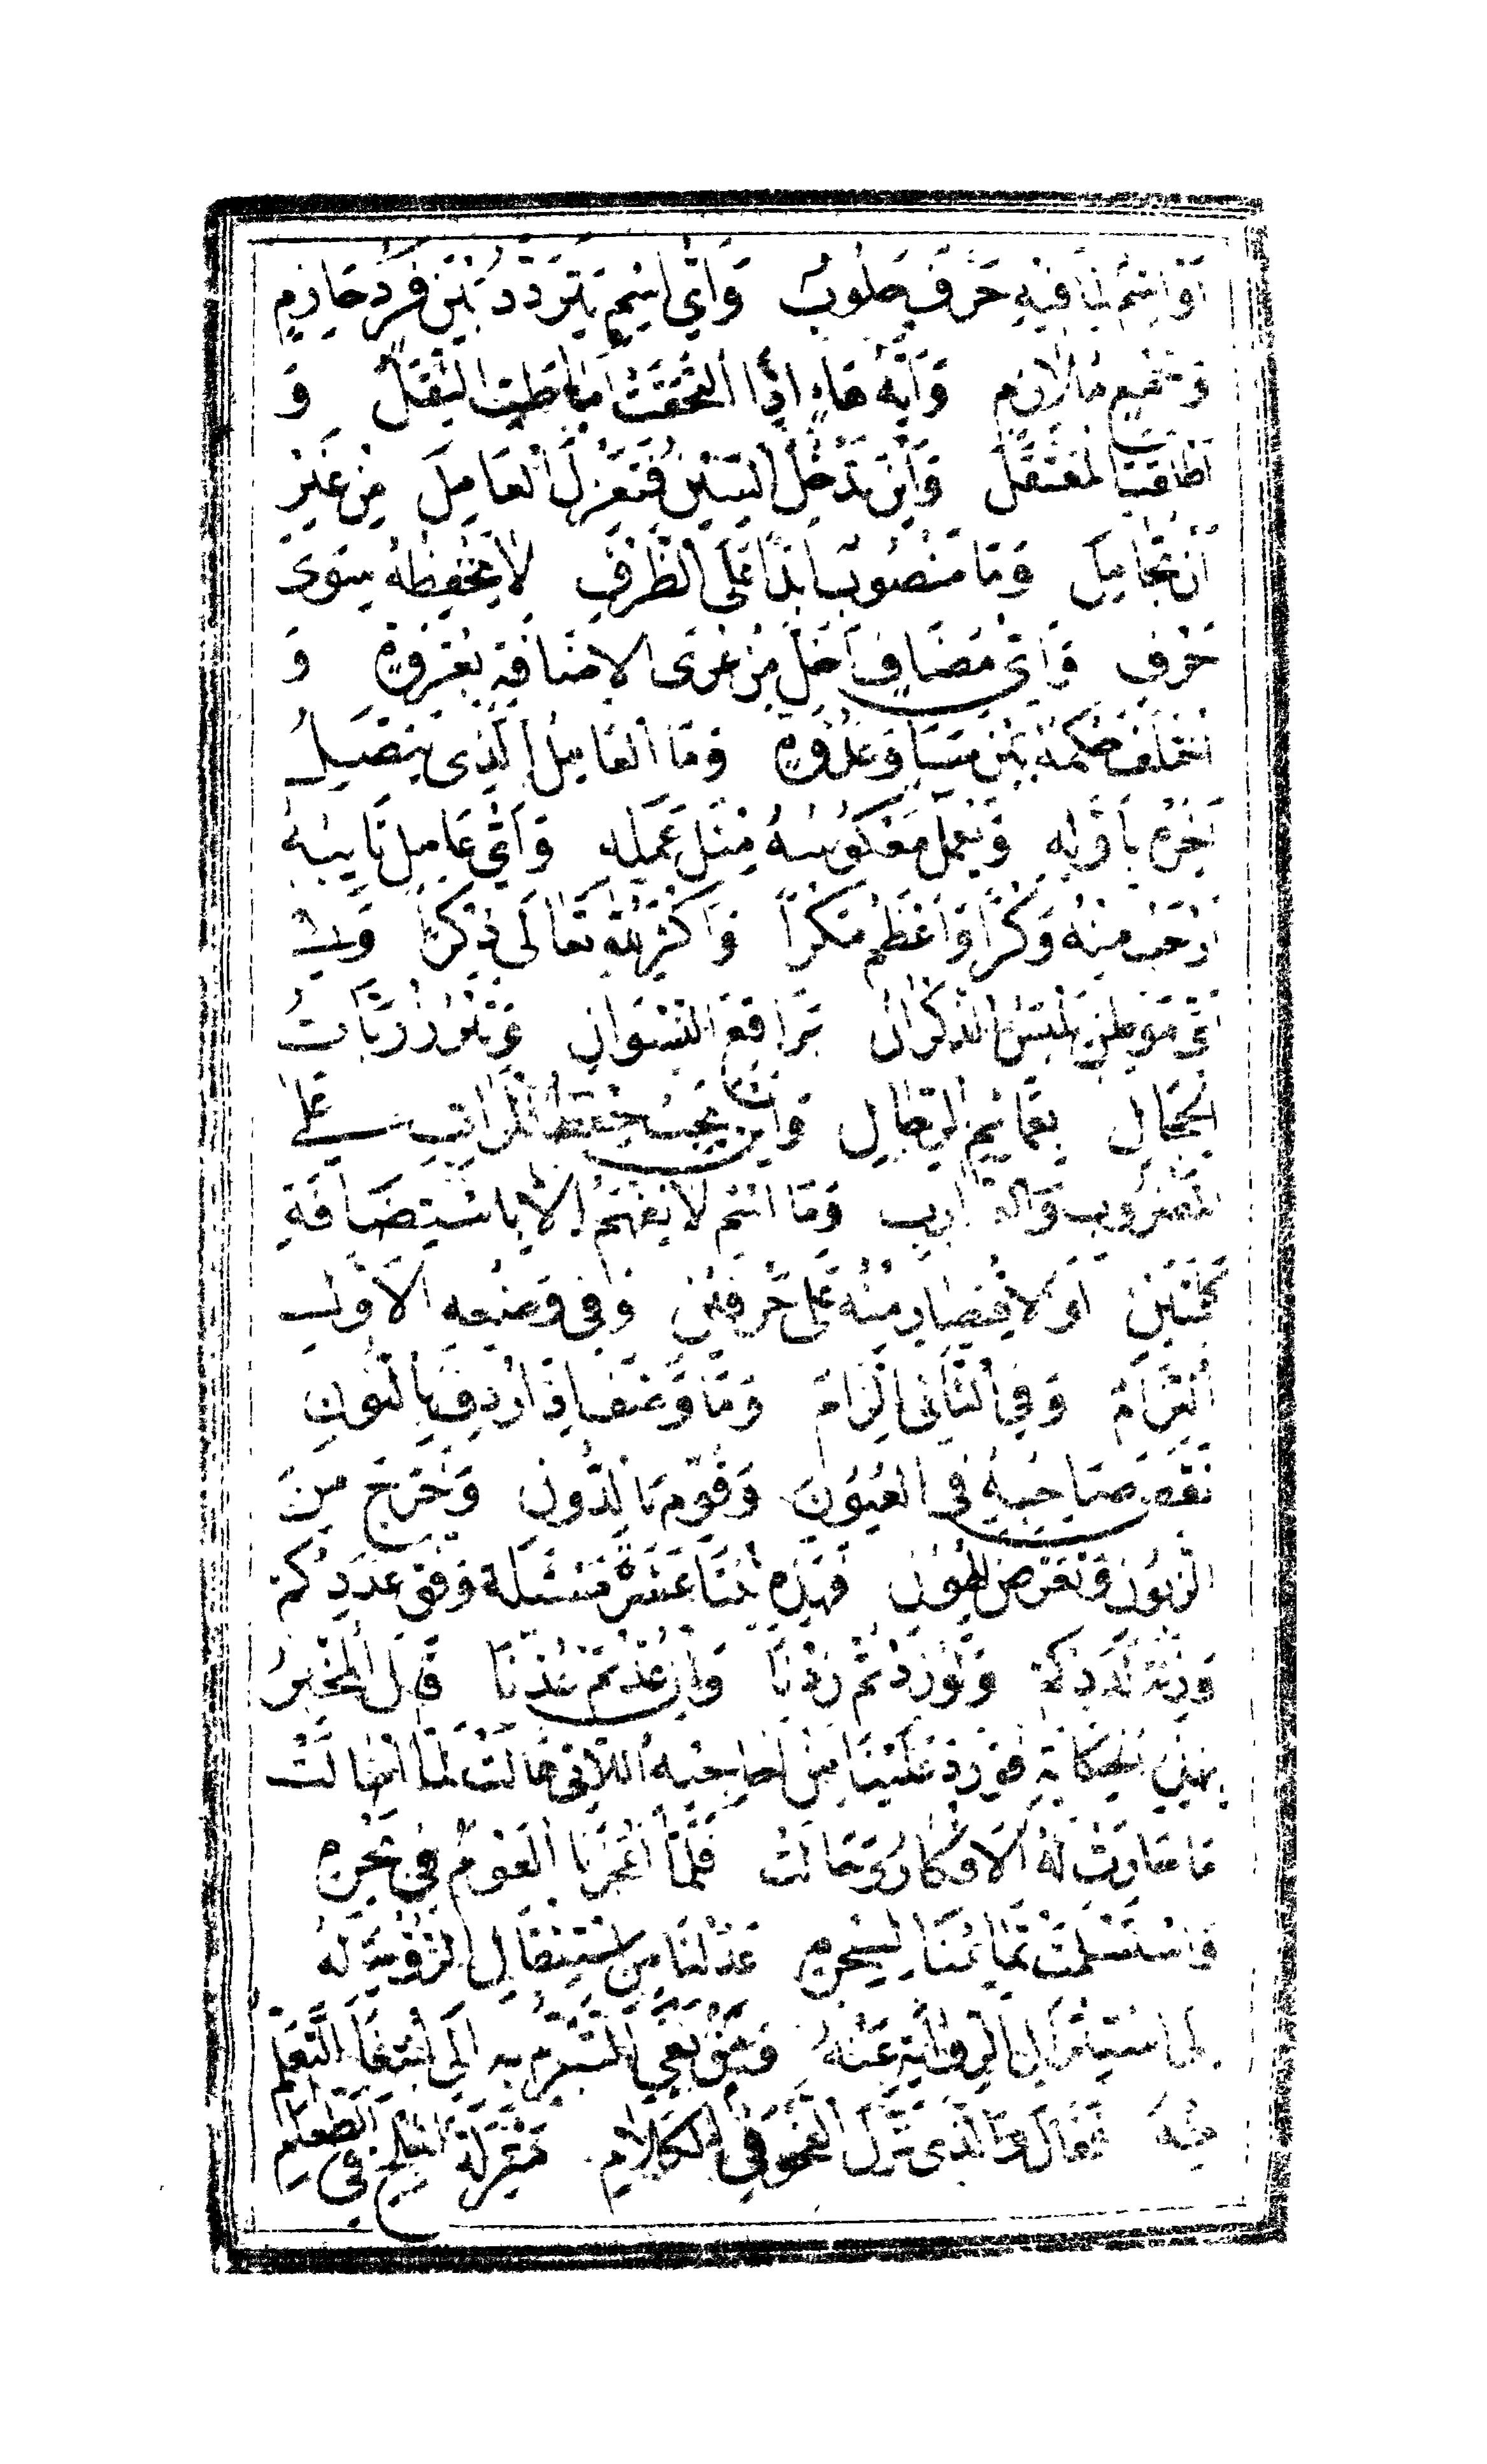 أو اسم لما فيه حرف حلوب وأي اسم يتردد بين فرد حازم
وجمع ملازم وأية هاء إذا التحقت أماطت الثقل و
أطلقت المعتقل وأين تدخل السين فتعزل العامل من غير
أن تجامل وما منصوب أبدا على الظرف لا يخفضه سوى
حرف وأي مضاف أخل من عرى الإضافة بعروة و
اختلف حكمه بين مساء وغدوة وما العامل الذي يتصل
آخره بأوله ويعمل معكوسه مثل عمله وأي عامل نائبه
أرحب منه وكرا وأعظم مكرا وأكثر لله تعالى ذكرا وفي
أي موطن تلبس الذكران براقع النسوان وتبرز ربات
الحجال بعمائم الرجال وأين يجب حفظ المراتب على
المضروب والضارب وما اسم لا يفهم إلا باستضافة
كلمتين أو الاقتصار منه على حرفين وفي وضعه الأول
التزام وفي الثاني إلزام وما وصف إذا أردف بالنون
نقص صاحبه في العيون وقوم بالدون وخرج من
الزبون وتعرض للهون فهذه اثنتا عشرة مسئلة وفق عددكم
وزنة لددكم ولو زدتم زدنا وإن عدتم عدنا قال المخبر
بهذه الحكاية فورد علينا من أحاجيه اللاتي هالت لما انهالت
ما حارت له الأفكار وحالت فلما أعجزنا العوم في بحره
واستسلمت تمائمنا لسحره عدلنا من استثقال الرؤية له
إلى استنزال الرواية عنه ومن بغي التبرم به إلى ابتغاء التعلم
منه فقال والذي نزل النحو في الكلام منزلة الملح في الطعام